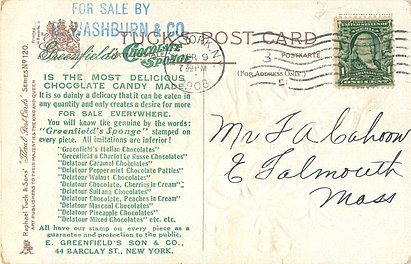 FOR SALE BY
WASHBURN & CO
TUCK'S POST CARD
Greenfield's CHOCOLATE SPONGE
POSTKARTE.
(FOR ADDRESS ONLY.)
9
7 30 PM
IS THE MOST DELICIOUS
CHOCOLATE CANDY MADE
It is so dainty a delicacy that it can be eaten in
any quantity and only creates a desire for more
FOR SALE EVERYWHERE.
You will know the genuine by the words:
"Greenfield's Sponge" stamped on
every piece. All imitations are inferior!
"Greenfield's Italian Chocolates"
"Greenfield's Charlotte Russe Chocolates"
"Delatour Caramel Chocolates"
"Delatour Peppermint Chocolate Patties"
"Delatour Walnut Chocolates"
"Delatour Chocolate, Cherries in Cream"
"Delatour Sultana Chocolates"
"Delatour Chocolate, Peaches in Cream"
"Delatour Mascool Chocolates"
"Delatour Pineapple Chocolates"
"Delatour Mixed Chocolates" etc. etc.
All have our stamp on every piece as a
guarantee and protection to the public.
E. GREENFIELD'S SON & CO.,
44 BARCLAY ST., NEW YORK.
Raphael Tuck & Sons' "Floral Post Cards" SERIES No 120.
ART PUBLISHERS TO THEIR MAJESTIES THE KING AND QUEEN
Mr F A Cahoon
E Falmouth
Mass